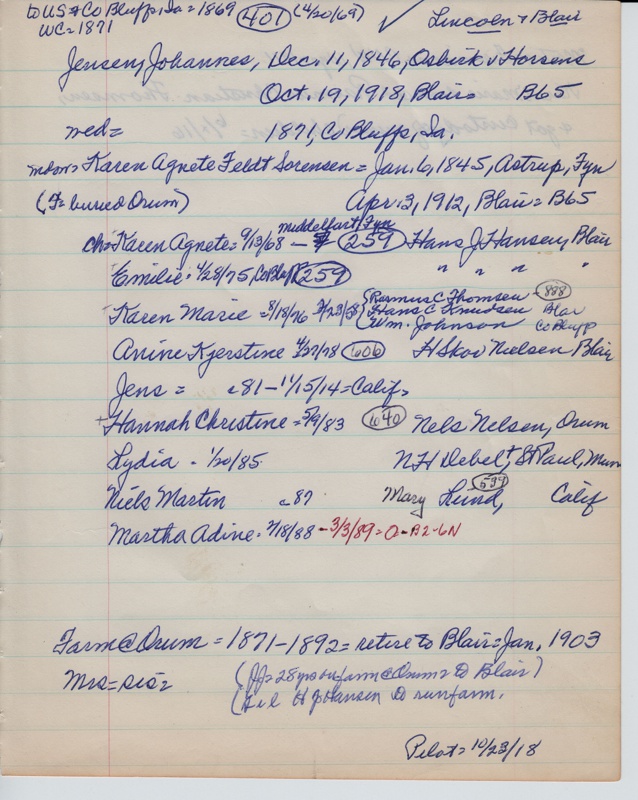 to US & Co Bluffs, Ia = 1869 401 (4/20/69) ✓ Lincoln + Blair
WC = 1871
Jensen, Johannes, Dec. 11, 1846, Osbirk v Horsens
Oct. 19, 1918, Blair = B65
med = 1871, Co Bluffs, Ia.
Karen Agnete Feldt Sorensen = Jan. 6, 1845, Astrup, Fyn
(F = buried Orum) Apr. 3, 1912, Blair = B65
middelfart/Fyn
ch = Karen Agnete = 9/13/68 — 259 Hans J. Hansen, Blair
Emilie = 4/28/75, Co Bluff 259 " " " "
Rasmus C Thomsen - 888
Karen Marie = 8/18/76 Hans C Knudsen Blar
Wm. Johnson Co Bluff
Anine Kjerstine 4/27/78 606 H Skov Nielsen Blair
Jens = c 81 - 11/15/14 = Calif.
+ Hannah Christine = 5/9/83 640 Nels Nelsen, Orum
Lydia - 1/20/85 NH Debelt, St Paul, Minn
599
Niels Martin c 87 Mary Lund, Calif
Martha Adine = 7/18/88 - 3/3/89 = O - B2-6N
Farm @ Orum = 1871-1892 = retire to Blair = Jan. 1903
Mrs = sis = (JJ = 28 yrs on farm @ Orum = to Blair)
(s i l H Johansen to run farm.
Pilot = 10/23/18